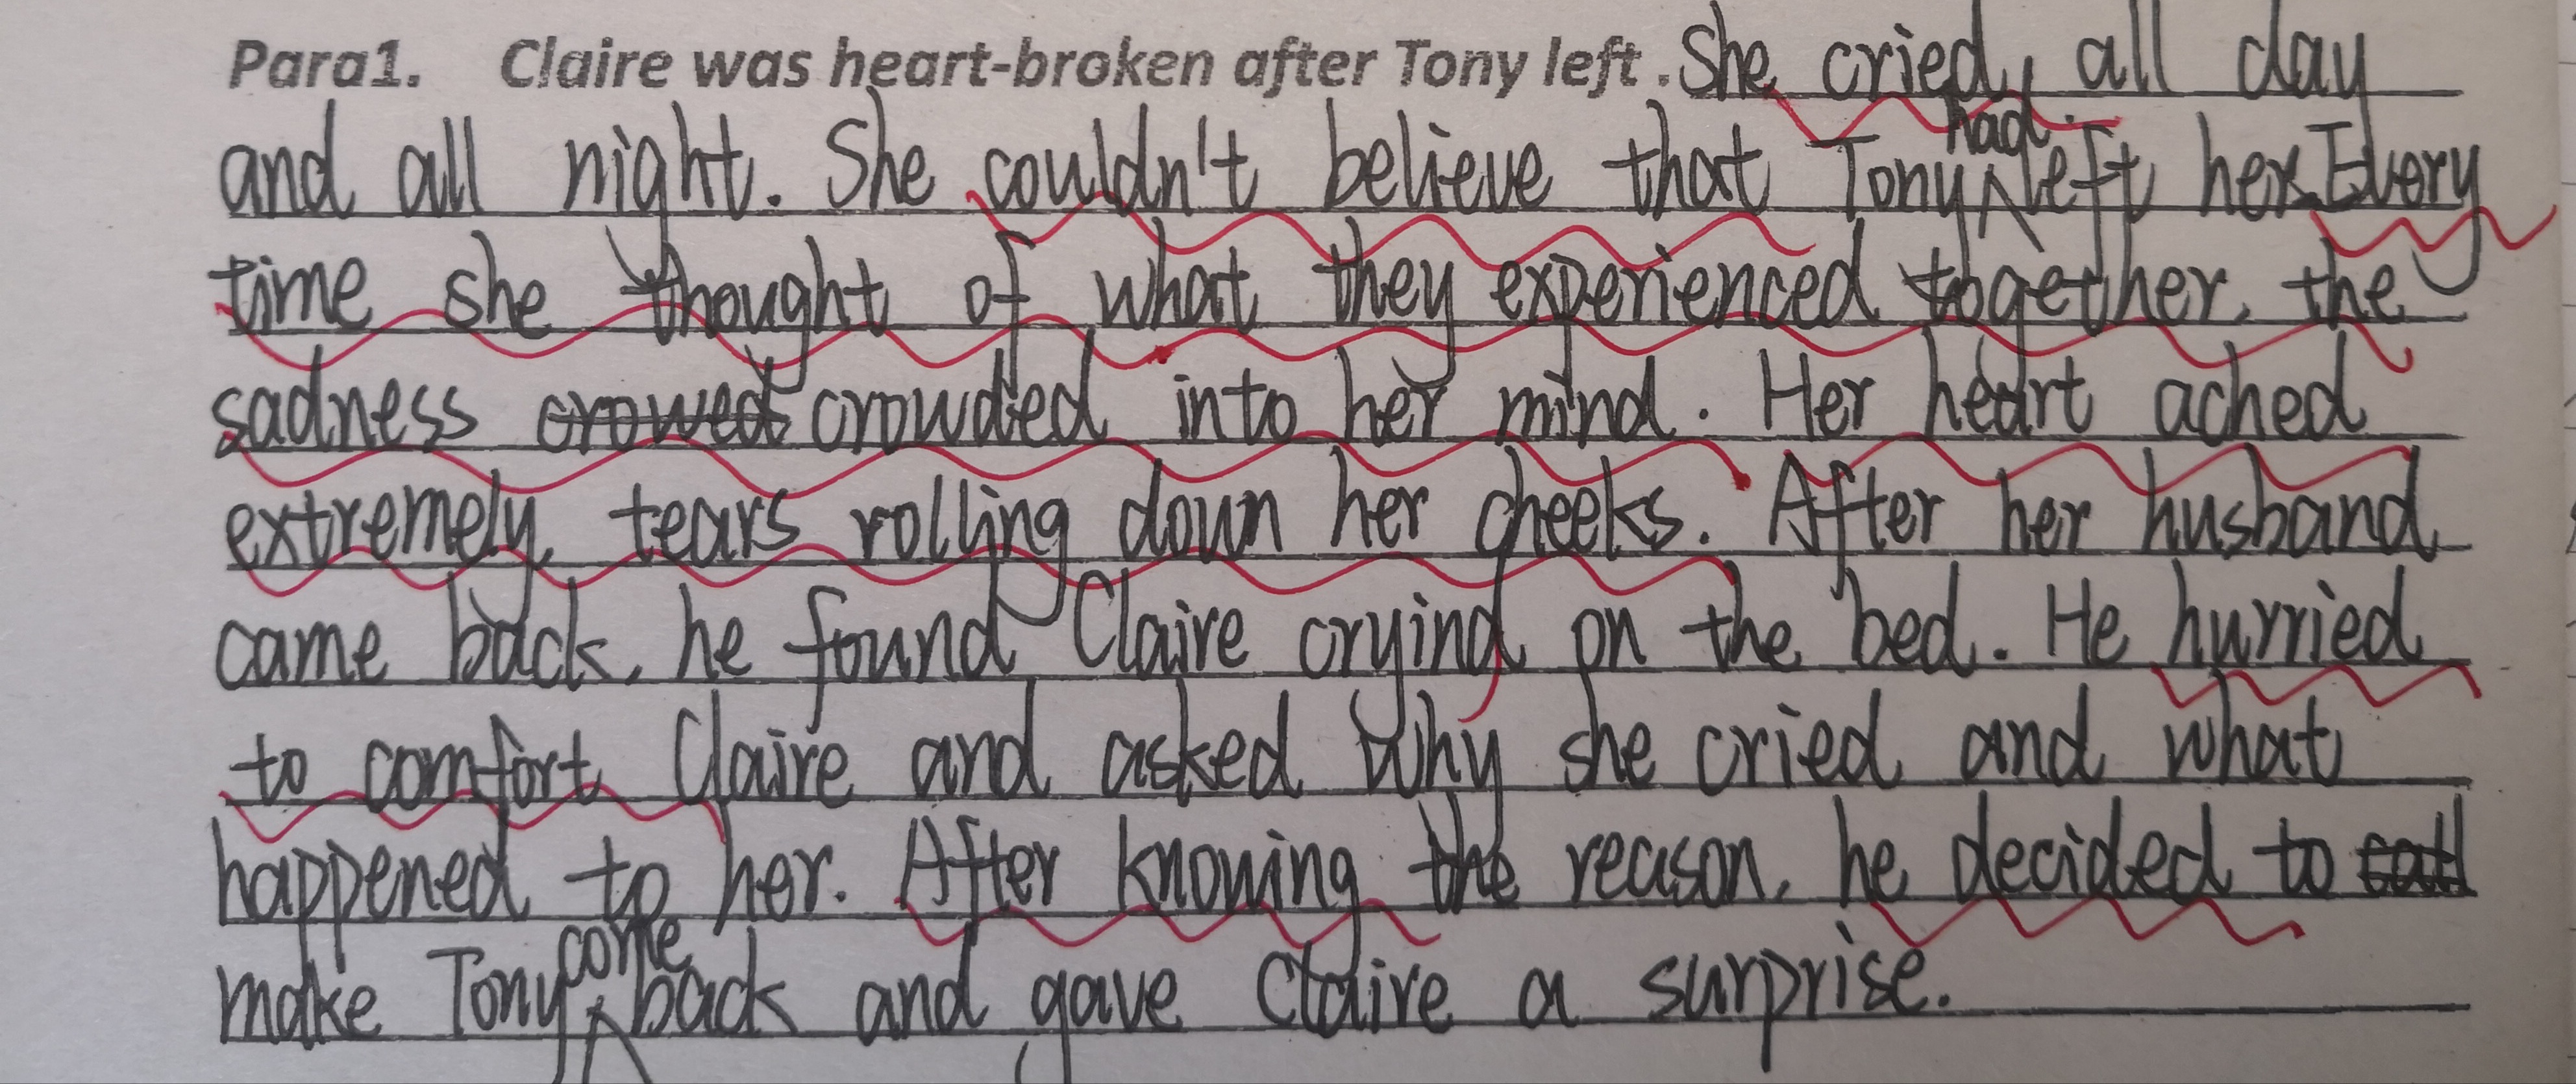 Para1. Claire was heart-broken after Tony left. She cried, all day
and all night. She couldn't believe that Tony had left her. Every
time she thought of what they experienced together, the
sadness crowed crowdied into her mind. Her heart ached
extremely, tears rolling down her cheeks. After her husband
came back, he found Claire cryind on the bed. He hurried
to comfort Claire and asked Why she cried and what
happened to her. After knowing the reason, he decided to call
make Tony come back and gave Claire a surprise.